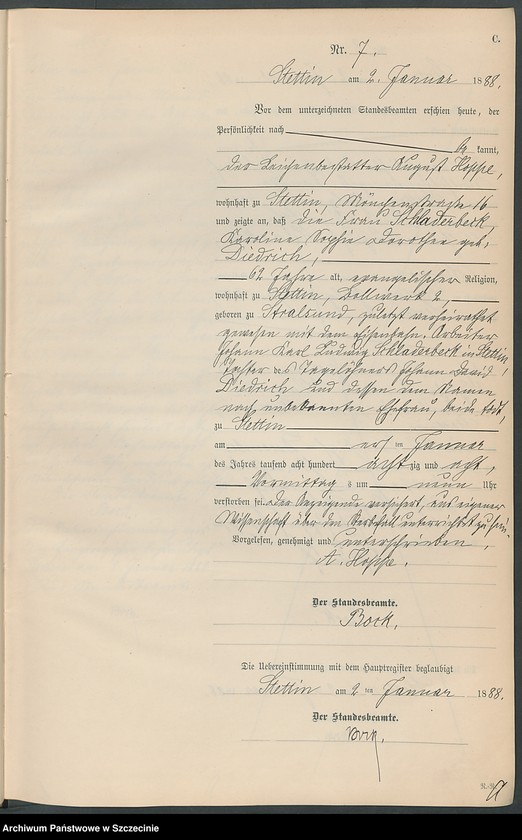 C.
Nr. 7.
Stettin am 2. Januar 1888.
Vor dem unterzeichneten Standesbeamten erschien heute, der
Persönlichkeit nach
be kannt,
der Leichenbestatter August Hoppe,
wohnhaft zu Stettin, Mönchenstraße 16
und zeigte an, daß die Frau Schladerbeck,
Karoline Sophie Dorothee geb.
Diedrich,
62 Jahre alt, evangelischer Religion,
wohnhaft zu Stettin, Bollwerk 2,
geboren zu Stralsund, zuletzt verheirathet
gewesen mit dem Eisenbahn-Arbeiter
Johann Karl Ludwig Schladerbeck in Stettin,
Tochter des Tagelöhners Johann David
Diedrich und dessen dem Namen
nach unbekannten Ehefrau, beide todt,
zu Stettin
am ersten Januar
des Jahres tausend acht hundert achtzig und acht,
Vormittags um neun Uhr
verstorben sei. Der Anzeigende versichert, aus eigener
Wissenschaft über den Sterbefall unterrichtet zu sein.
Vorgelesen, genehmigt und unterschrieben.
A. Hoppe.
Der Standesbeamte.
Bock.
Die Uebereinstimmung mit dem Hauptregister beglaubigt
Stettin am 2ten Januar 1888.
Der Standesbeamte.
Bock.
Archiwum Państwowe w Szczecinie